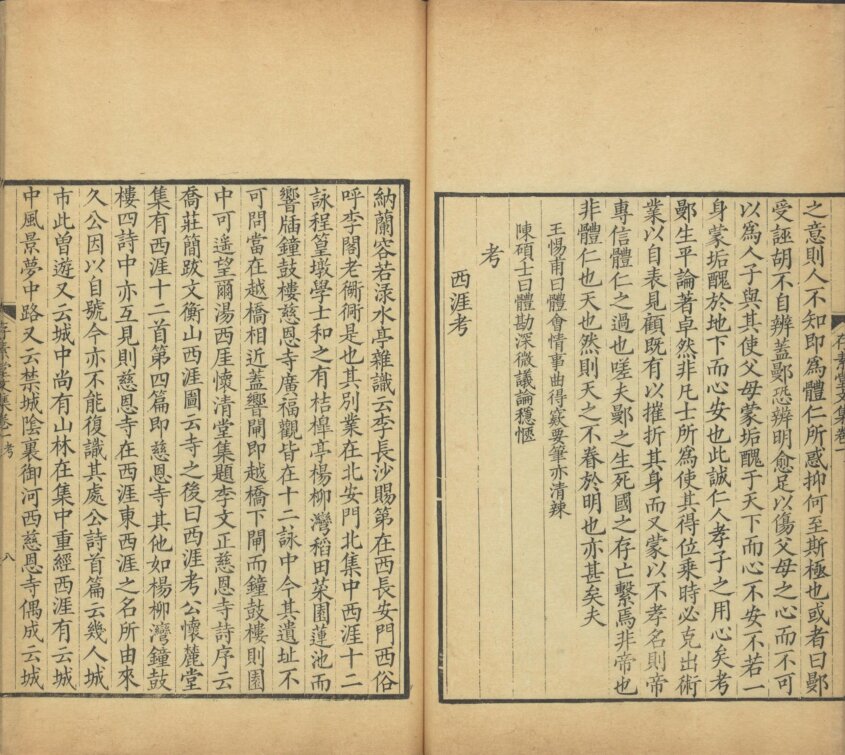 之意則人不知即爲體仁所惑抑何至斯極也或者曰鄤
受誣胡不自辨蓋鄤恐辨明愈足以傷父母之心而不可
以爲人子與其使父母蒙垢醜于天下而心不安不若一
身蒙垢醜於地下而心安也此誠仁人孝子之用心矣考
鄤生平論著卓然非凡士所爲使其得位乘時必克出術
業以自表見顧既有以摧折其身而又蒙以不孝名則帝
專信體仁之過也嗟夫鄤之生死國之存亡繫焉非帝也
非體仁也天也然則天之不眷於明也亦甚矣夫
王惕甫曰體會情事曲得竅要筆亦清辣
陳碩士曰體勘深微議論穩愜
考
西涯考
存素堂文集卷一
納蘭容若淥水亭雜識云李長沙賜第在西長安門西俗
呼李閣老衚衕是也其別業在北安門北集中西涯十二
詠程篁墩學士和之有桔槔亭楊柳灣稻田菜園蓮池而
響牐鐘鼓樓慈恩寺廣福觀皆在十二詠中今其遺址不
可問當在越橋相近蓋響閘即越橋下閘而鐘鼓樓則園
中可遙望爾湯西厓懷清堂集題李文正慈恩寺詩序云
喬莊簡跋文衡山西涯圖云寺之後曰西涯考公懷麓堂
集有西涯十二首第四篇即慈恩寺其他如楊柳灣鐘鼓
樓四詩中亦互見則慈恩寺在西涯東西涯之名所由來
久公因以自號今亦不能復識其處公詩首篇云幾人城
市此曾遊又云城中尚有山林在集中重經西涯有云城
中風景夢中路又云禁城陰裏御河西慈恩寺偶成云城
存素堂文集卷一 考
八